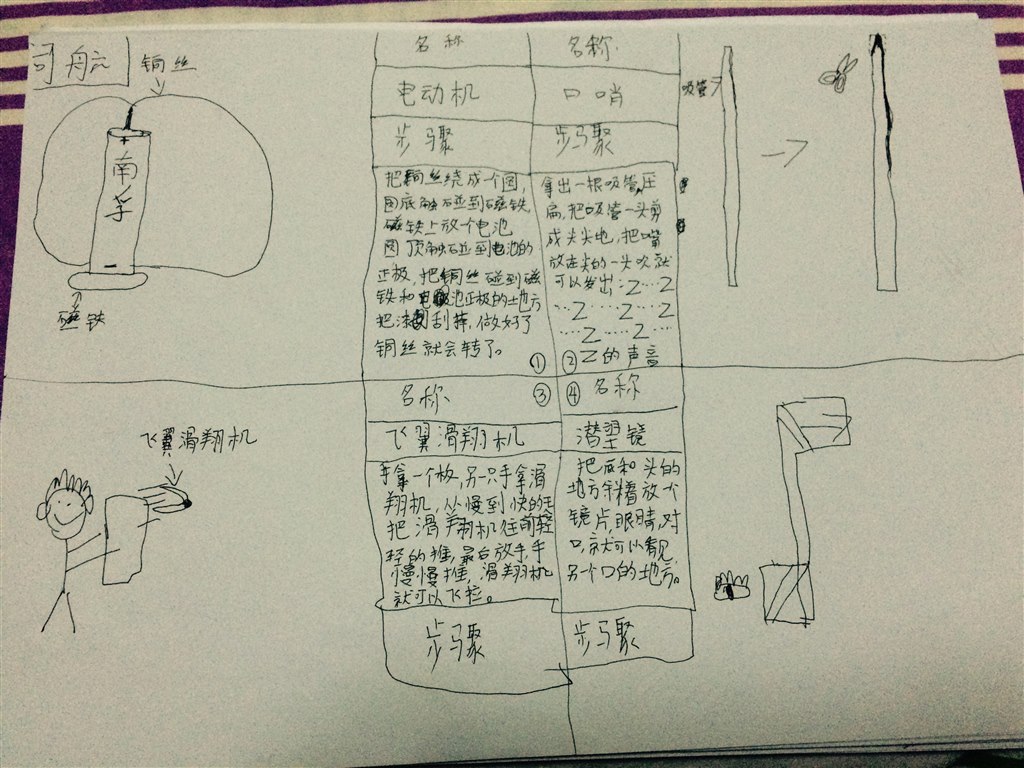 司舟六
铜丝
南
孚
磁铁
名称
电动机
步骤
把铜丝绕成一个圆,
圆底触碰到磁铁,
磁铁上放个电池
圆顶触碰到电池的
正极,把铜丝碰到磁
铁和电池正极的地方
把漆刮掉,做好了
铜丝就会转了。
①
名称
口哨
步骤
拿出一根吸管,压
扁,把吸管一头剪
成尖尖地,把嘴
放在尖的一头吹就
可以发出:Z…Z
…Z…Z…Z
…Z…Z…Z
②Z的声音
吸管
飞翼滑翔机
名称
③
飞翼滑翔机
手拿一个板,另一只手拿滑
翔机,从慢到快的
把滑翔机往前轻
轻的推,最后放手,手
慢慢推,滑翔机
就可以飞拉。
步骤
④名称
潜望镜
把底和头的
地方斜着放一个
镜片,眼睛,对
口,就可以看见
另个口的地方。
步骤